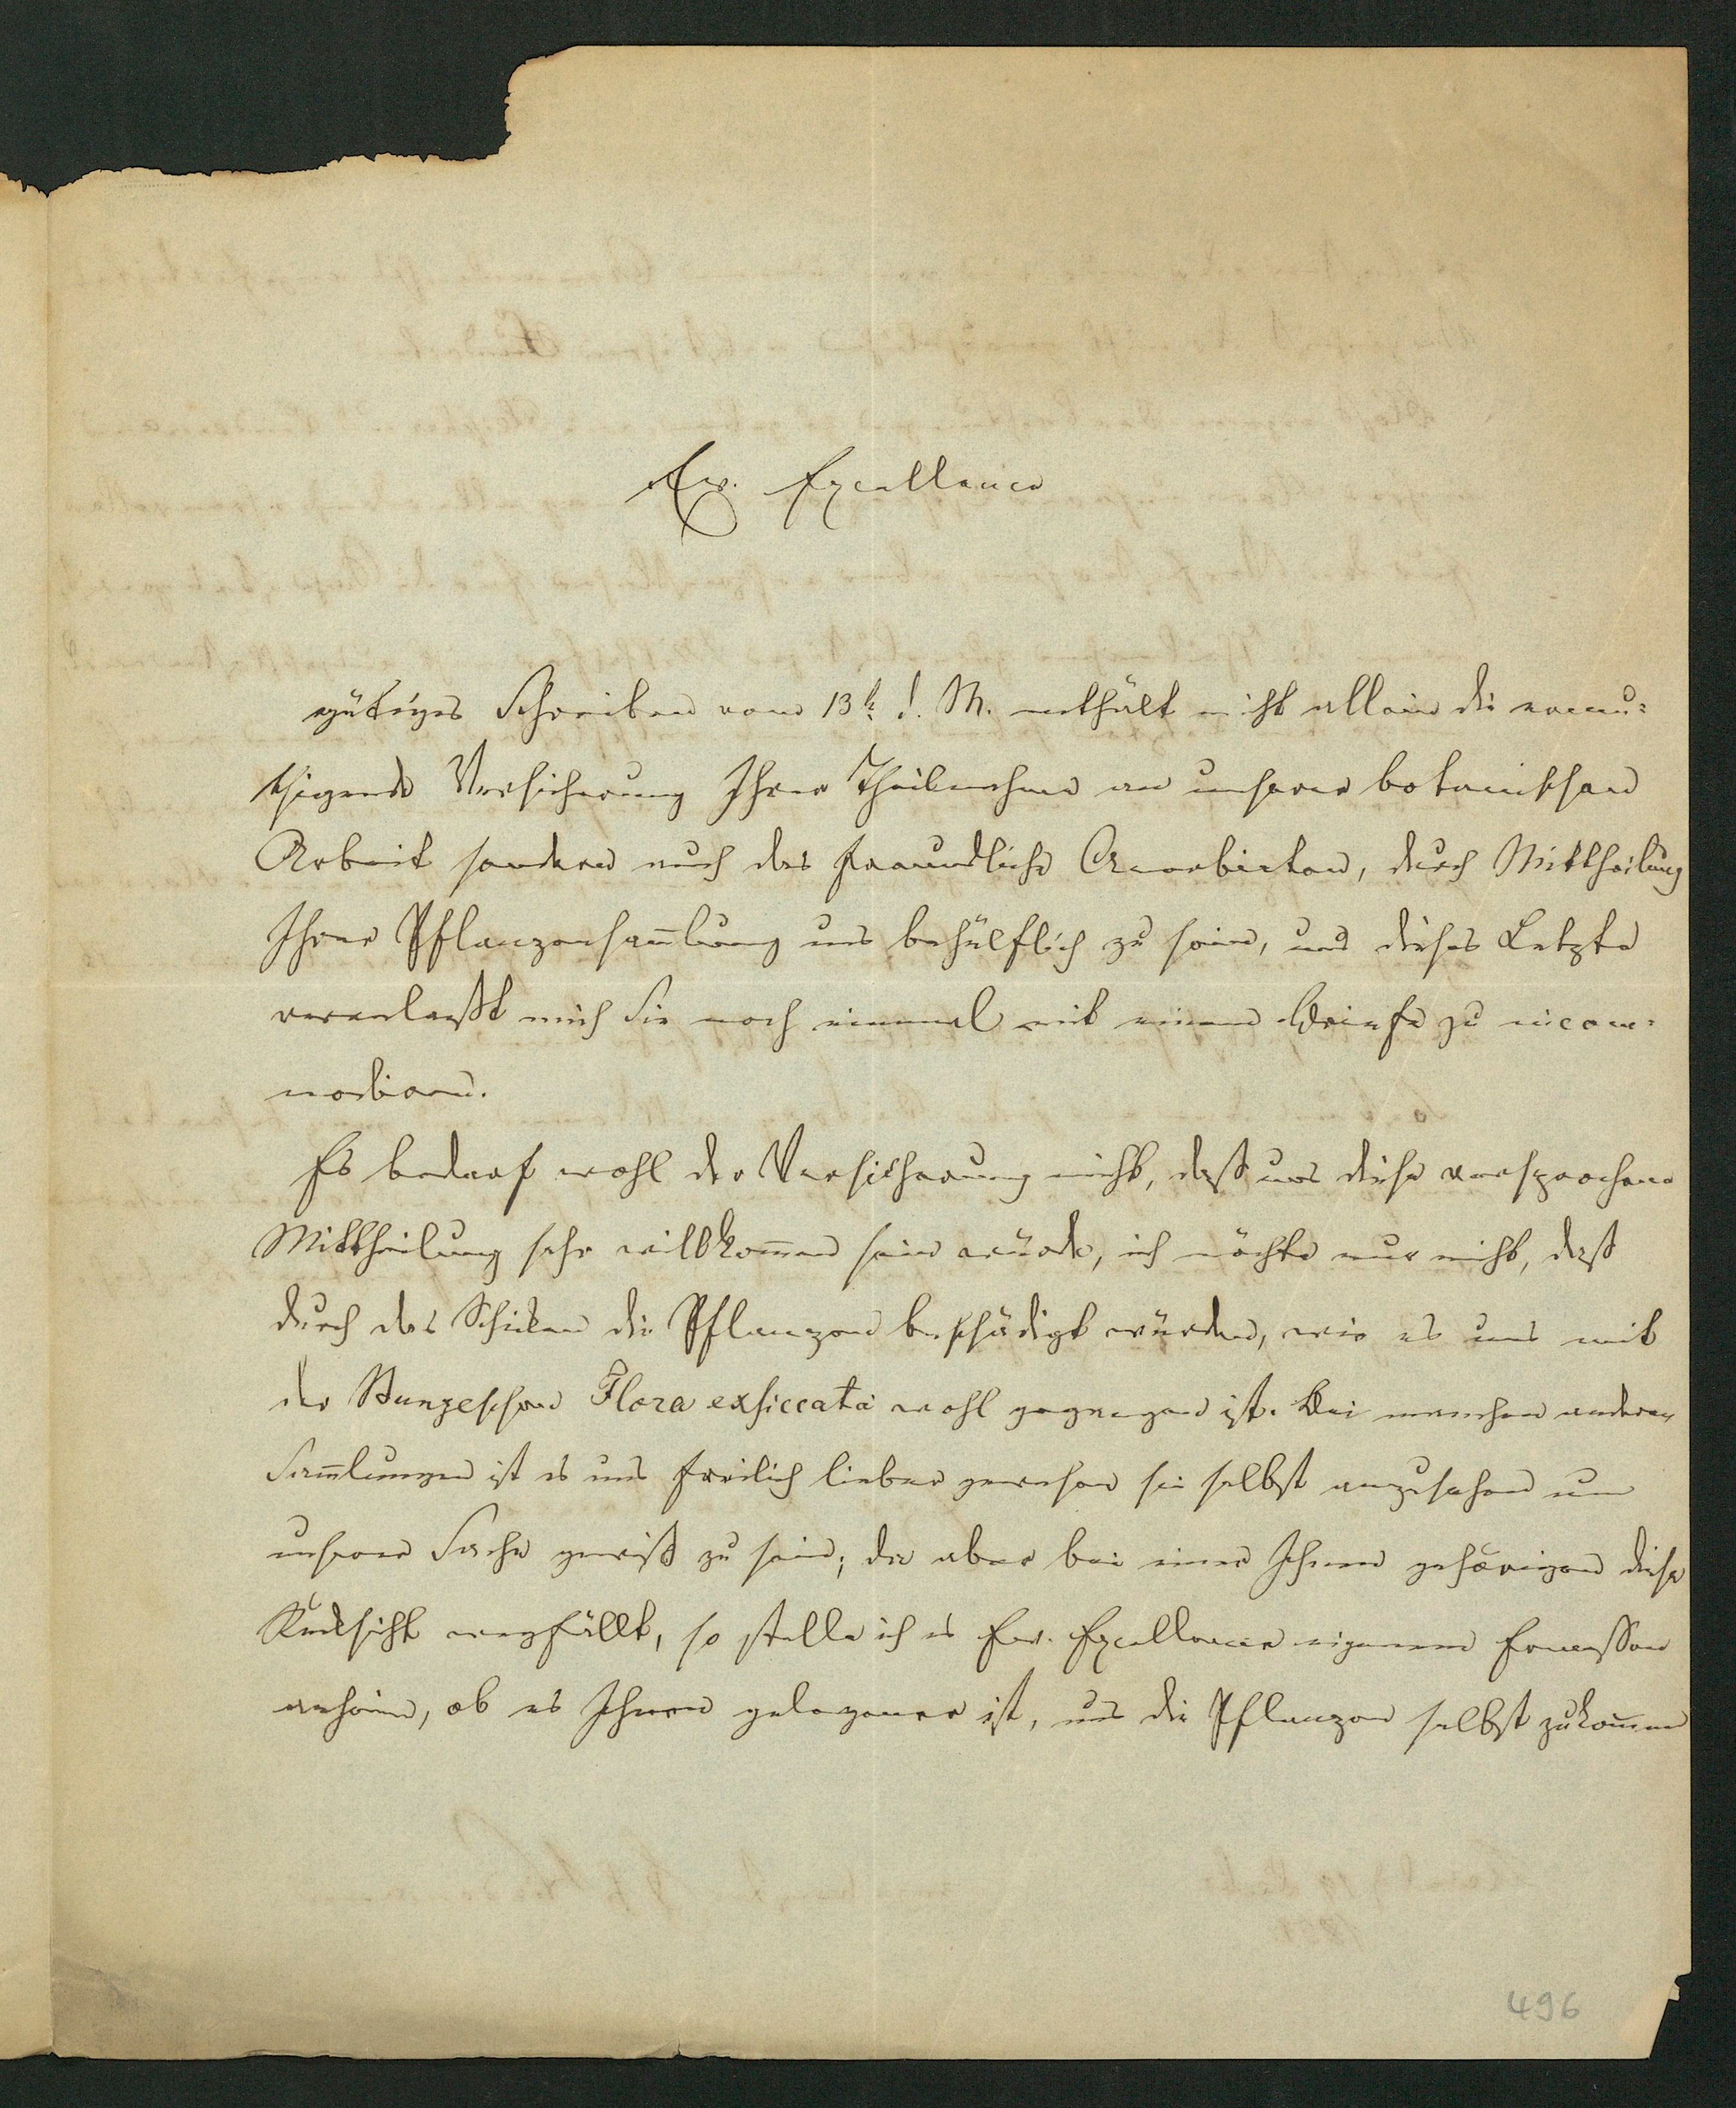 Ew. Excellence
gütiges Schreiben vom 13t d. M. enthält nicht allein die ermu-
thigende Versicherung Ihrer Theilnahme an unserer botanischen
Arbeit sondern auch das freundliche Anerbieten, durch Mittheilung
Ihrer Pflanzensam̄lung uns behülflich zu sein, und dieses Letzte
veranlaßt mich Sie noch einmal mit einem Briefe zu incom-
modiren.
Es bedarf wohl der Versicherung nicht, daß uns diese versprochene
Mittheilung sehr willkom̄en sein würde, ich möchte nur nicht, daß
durch das Schicken die Pflanzen beschädigt würden, wie es uns mit
der Bungeschen Flora exsiccata wohl gegangen ist. Bei manchen anderen
Sam̄lungen ist es uns freilich lieber gewesen sie selbst anzusehen um
unserer Sache gewiß zu sein; da aber bei einer Ihnen gehörigen diese
Rücksicht wegfällt, so stelle ich es Ew. Excellence eigenem Ermessen
anheim, ob es Ihnen gelegener ist, uns die Pflanzen selbst zukom̄en
496